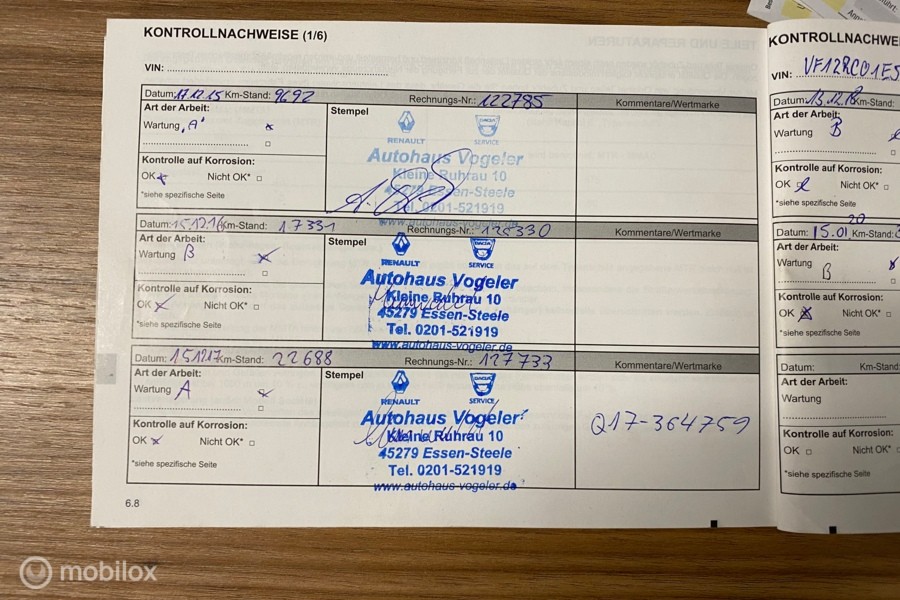 KONTROLLNACHWEISE (1/6)
VIN:
Datum: 17.12.15 Km-Stand: 9692 Rechnungs-Nr.: 122785 Kommentare/Wertmarke
Art der Arbeit:
Wartung "A"
Kontrolle auf Korrosion:
OK Nicht OK*
*siehe spezifische Seite
Stempel
RENAULT DACIA SERVICE
Autohaus Vogeler
Kleine Ruhrau 10
45279 Essen-Steele
Tel. 0201-521919
www.autohaus-vogeler.de
Datum: 15.12.16 Km-Stand: 17331 Rechnungs-Nr.: 125330 Kommentare/Wertmarke
Art der Arbeit:
Wartung B
Kontrolle auf Korrosion:
OK Nicht OK*
*siehe spezifische Seite
Stempel
RENAULT DACIA SERVICE
Autohaus Vogeler
Kleine Ruhrau 10
45279 Essen-Steele
Tel. 0201-521919
www.autohaus-vogeler.de
Datum: 151217 Km-Stand: 22688 Rechnungs-Nr.: 127733 Kommentare/Wertmarke
Art der Arbeit:
Wartung A
Kontrolle auf Korrosion:
OK Nicht OK*
*siehe spezifische Seite
Stempel
RENAULT DACIA SERVICE
Autohaus Vogeler
Kleine Ruhrau 10
45279 Essen-Steele
Tel. 0201-521919
www.autohaus-vogeler.de
Q17-364759
6.8
KONTROLLNACHWE
VIN: VF12RC01E5
Datum: 13.12.18 Km-Stand:
Art der Arbeit:
Wartung B
Kontrolle auf Korrosion:
OK Nicht OK*
*siehe spezifische Seite
Datum: 15.01.20 Km-Stand:
Art der Arbeit:
Wartung B
Kontrolle auf Korrosion:
OK Nicht OK*
*siehe spezifische Seite
Datum: Km-Stand:
Art der Arbeit:
Wartung
Kontrolle auf Korrosion:
OK Nicht OK*
*siehe spezifische Seite
mobilox